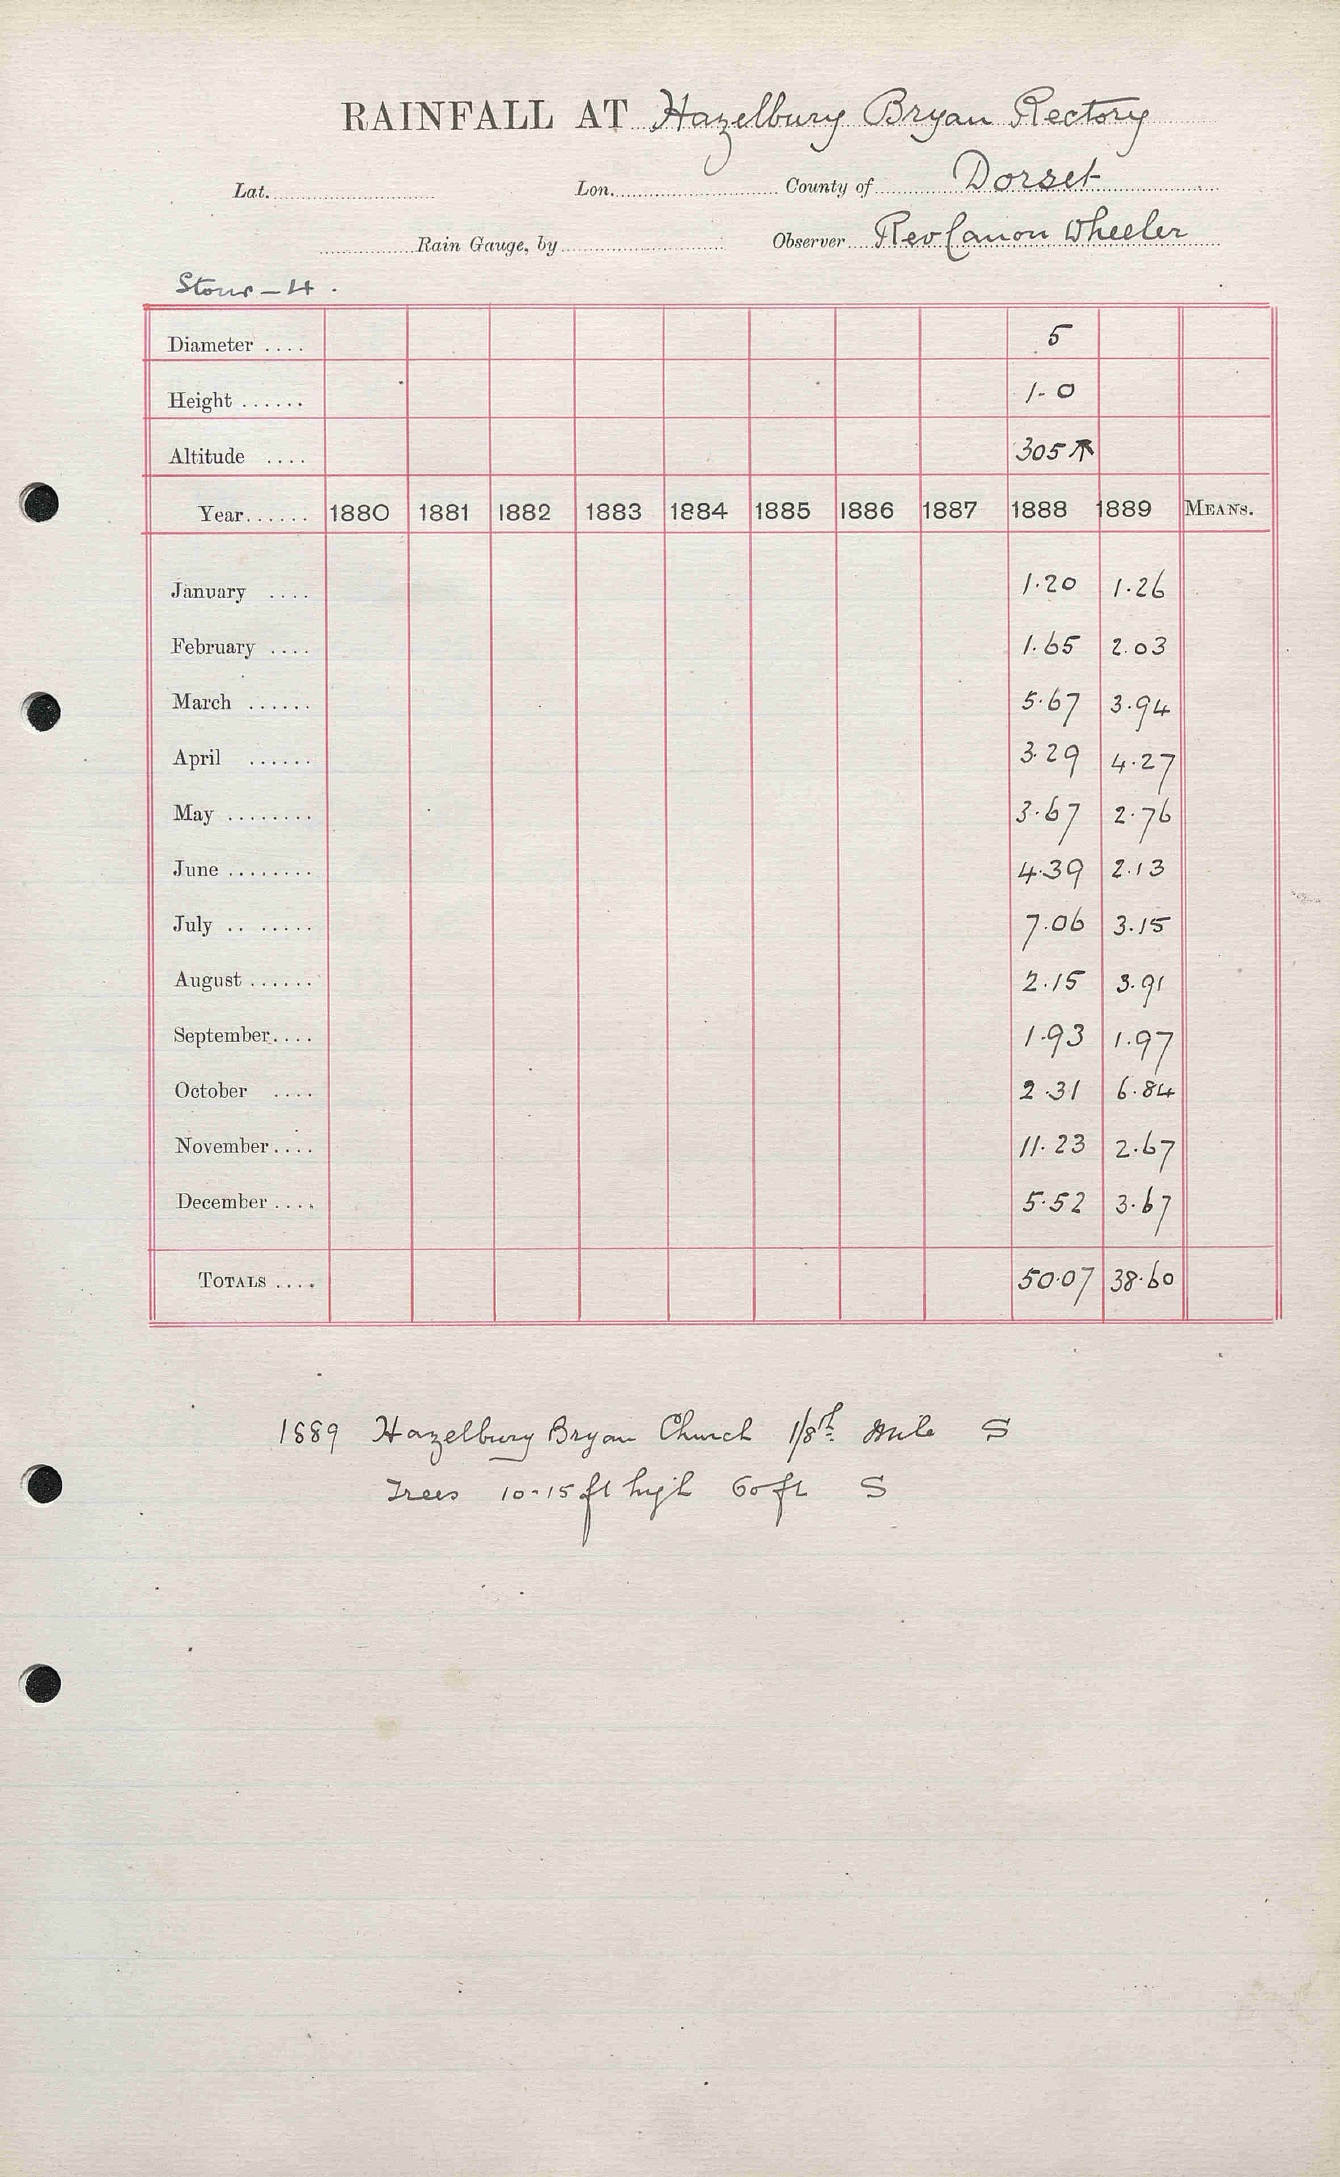 RAINFALL AT Hazelbury Bryan Rectory
Lat. Lon. County of Dorset
Rain Gauge, by Observer Rev Canon Wheeler
Stour - 4.
Diameter .... 5
Height ...... 1-0
Altitude .... 305
Year...... 1880 1881 1882 1883 1884 1885 1886 1887 1888 1889 MEANS.
January .... 1.20 1.26
February .... 1.65 2.03
March ...... 5.67 3.94
April ...... 3.29 4.27
May ........ 3.67 2.76
June ........ 4.39 2.13
July .. ..... 7.06 3.15
August ...... 2.15 3.91
September.... 1.93 1.97
October .... 2.31 6.84
November.... 11.23 2.67
December .... 5.52 3.67
TOTALS .... 50.07 38.60
1889 Hazelbury Bryan Church 1/8th mile S
Trees 10-15 ft high 60 ft S